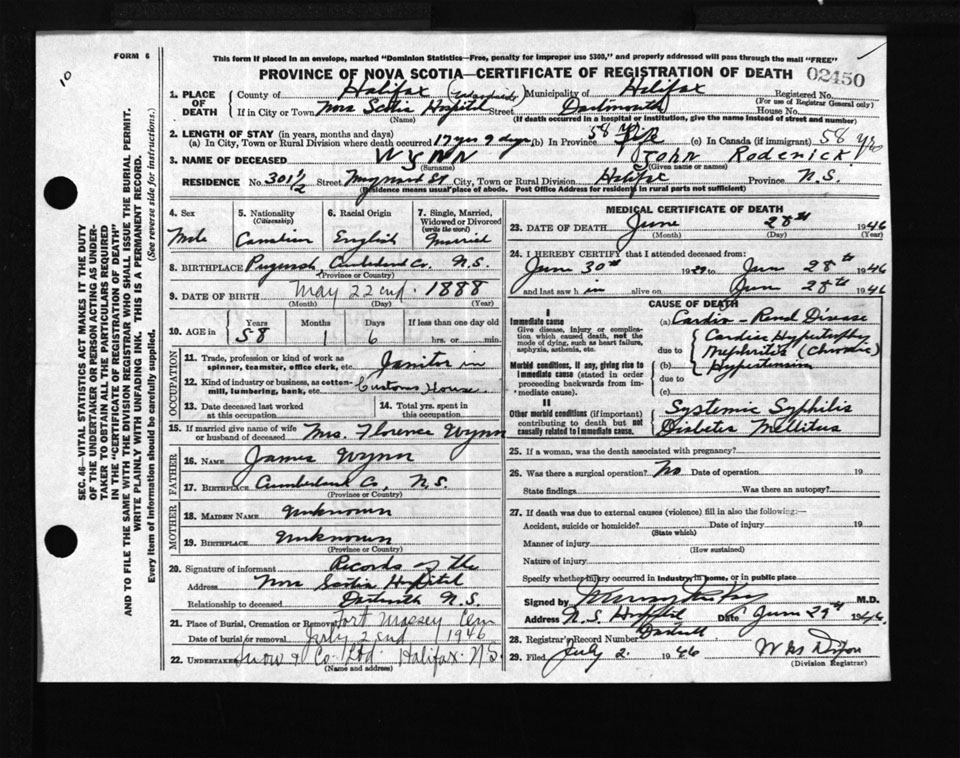 FORM 6
This form if placed in an envelope, marked "Dominion Statistics—Free, penalty for improper use $300," and properly addressed will pass through the mail "FREE"
PROVINCE OF NOVA SCOTIA—CERTIFICATE OF REGISTRATION OF DEATH
02450
10
1. PLACE OF DEATH
County of Halifax Municipality of Halifax Registered No.
(For use of Registrar General only)
If in City or Town Nova Scotia Hospital Street Dartmouth House No.
(Name) (If death occurred in a hospital or institution, give the name instead of street and number)
2. LENGTH OF STAY (in years, months and days)
(a) In City, Town or Rural Division where death occurred 17 yrs 9 dys (b) In Province 58 Yrs (c) In Canada (if immigrant) 58 Yrs
3. NAME OF DECEASED WYNN John Roderick
(Surname) (Given name or names)
RESIDENCE No. 301 1/2 Street Maynard St City, Town or Rural Division Halifax Province N.S.
(Residence means usual place of abode. Post Office Address for residents in rural parts not sufficient)
4. Sex Male
5. Nationality (Citizenship) Canadian
6. Racial Origin English
7. Single, Married, Widowed or Divorced (write the word) Married
8. BIRTHPLACE Pugwash, Cumberland Co. N.S.
(Province or Country)
9. DATE OF BIRTH May 22nd. 1888
(Month) (Day) (Year)
10. AGE in Years Months Days If less than one day old
58 1 6 hrs. or min.
OCCUPATION
11. Trade, profession or kind of work as spinner, teamster, office clerk, etc. Janitor in
12. Kind of industry or business, as cotton-mill, lumbering, bank, etc. Customs House
13. Date deceased last worked at this occupation
14. Total yrs. spent in this occupation
15. If married give name of wife or husband of deceased Mrs. Florence Wynn
FATHER
16. NAME James Wynn
17. BIRTHPLACE Cumberland Co, N.S.
(Province or Country)
MOTHER
18. MAIDEN NAME Unknown
19. BIRTHPLACE Unknown
(Province or Country)
20. Signature of informant Records of the
Address Nova Scotia Hospital
Relationship to deceased Dartmouth N.S.
21. Place of Burial, Cremation or Removal Fort Massey Cem
Date of burial or removal July 2nd 1946
22. UNDERTAKER Snow & Co. Ltd. Halifax N.S.
(Name and address)
MEDICAL CERTIFICATE OF DEATH
23. DATE OF DEATH June 28th 1946
(Month) (Day) (Year)
24. I HEREBY CERTIFY that I attended deceased from:
June 30th 1929 to June 28th 1946
and last saw him alive on June 28th 1946
CAUSE OF DEATH
I
Immediate cause
Give disease, injury or complication which caused death, not the mode of dying, such as heart failure, asphyxia, asthenia, etc.
(a) Cardio-Renal Disease
due to
Morbid conditions, if any, giving rise to immediate cause (stated in order proceeding backwards from immediate cause).
Cardiac Hypertrophy
Nephritis (Chronic)
(b) Hypertension
due to
(c)
II
Other morbid conditions (if important) contributing to death but not causally related to immediate cause.
Systemic Syphilis
Diabetes Mellitus
25. If a woman, was the death associated with pregnancy?
26. Was there a surgical operation? No Date of operation 19
State findings Was there an autopsy?
27. If death was due to external causes (violence) fill in also the following:—
Accident, suicide or homicide? Date of injury 19
(State which)
Manner of injury
(How sustained)
Nature of injury
Specify whether injury occurred in industry, in home, or in public place
Signed by M.D.
Address N.S. Hospital Date June 29th 1946
28. Registrar's Record Number
29. Filed July 2. 1946
(Division Registrar)
SEC. 46—VITAL STATISTICS ACT MAKES IT THE DUTY
OF THE UNDERTAKER OR PERSON ACTING AS UNDERTAKER TO OBTAIN ALL THE PARTICULARS REQUIRED
IN THE "CERTIFICATE OF REGISTRATION OF DEATH"
AND TO FILE THE SAME WITH THE DIVISION REGISTRAR WHO SHALL ISSUE THE BURIAL PERMIT.
WRITE PLAINLY WITH UNFADING INK. THIS IS A PERMANENT RECORD.
Every item of information should be carefully supplied. (See reverse side for instructions.)